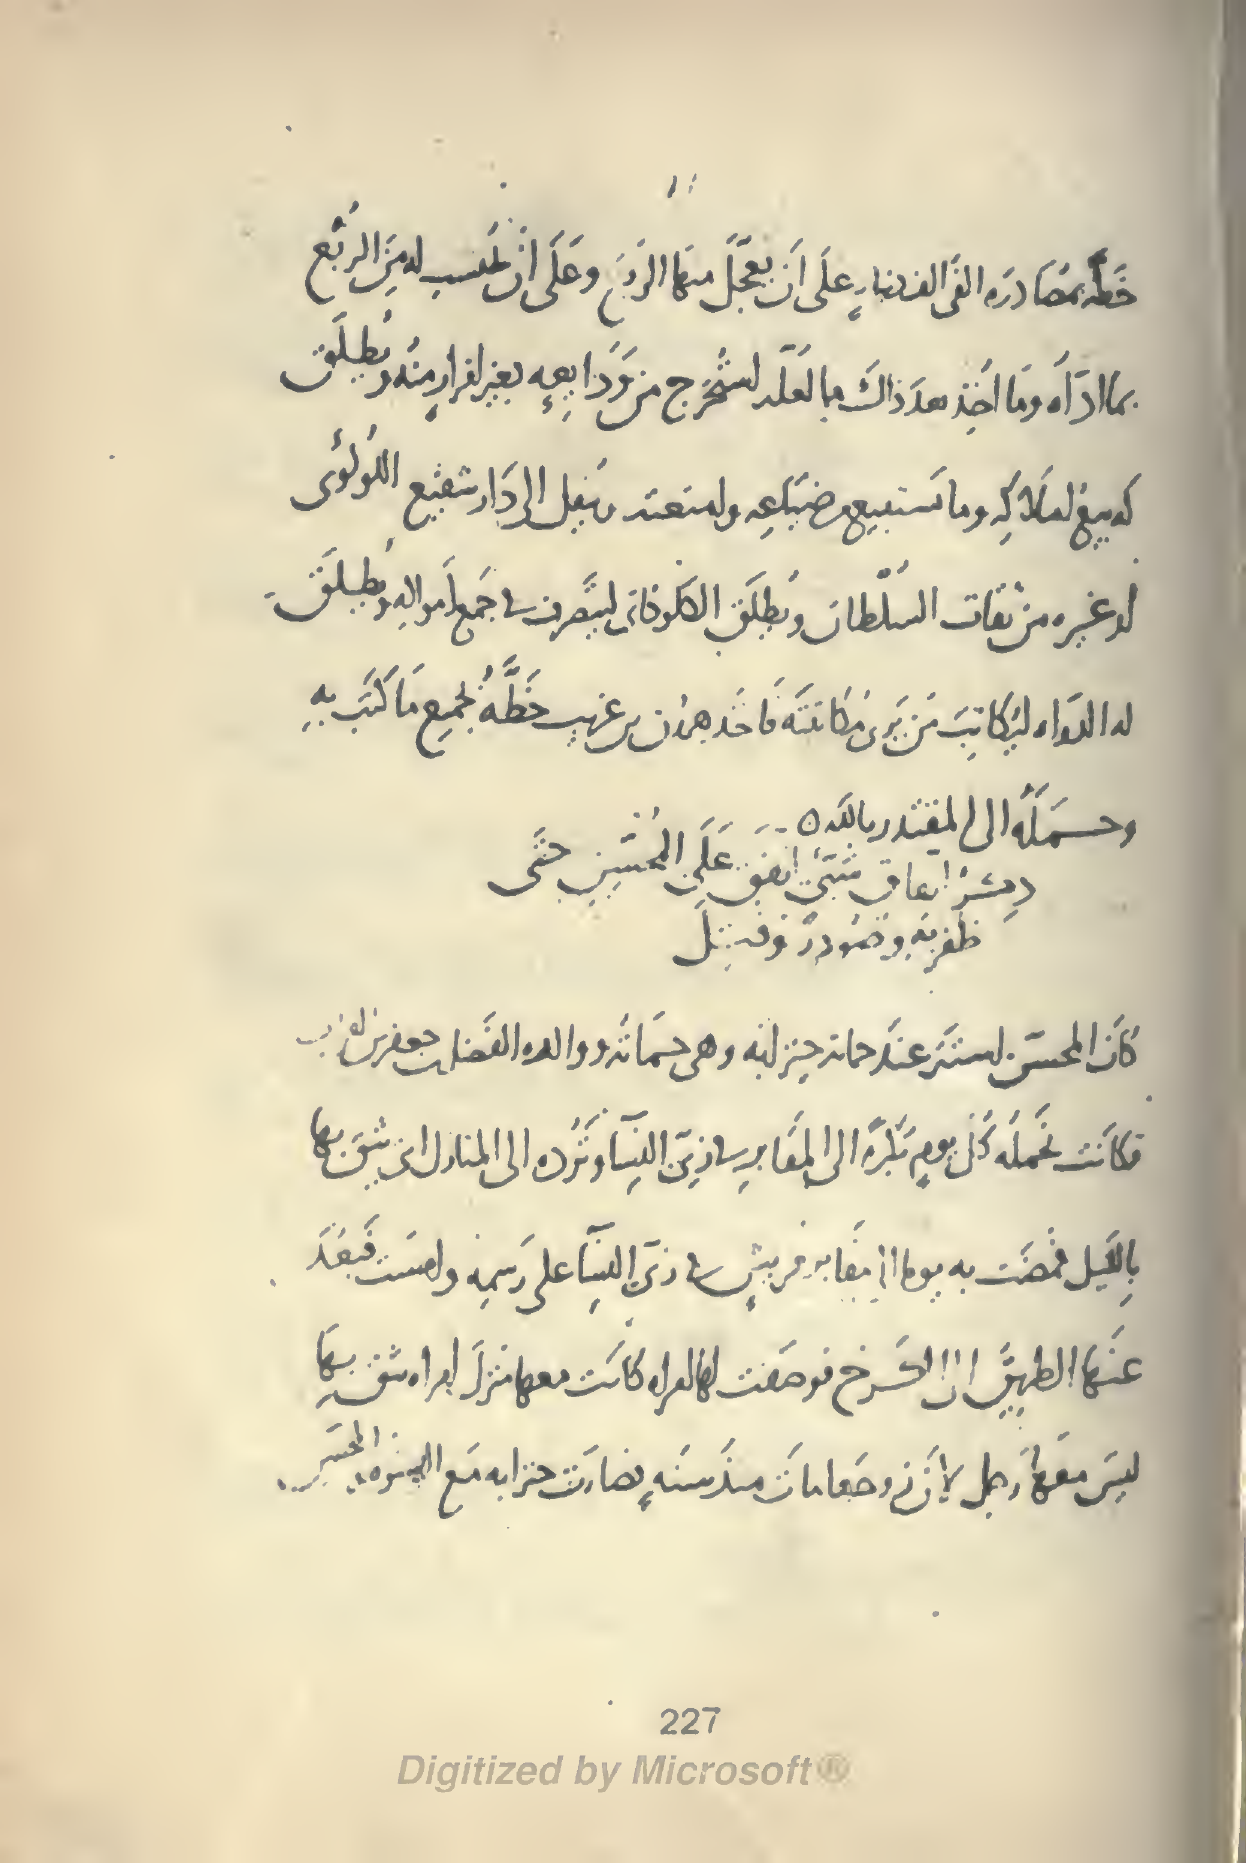 خَطَّه بمُصَادرَه الفَى الف دينارٍ علَى اَن يعَجّلَ منهَا الربعَ وعَلَى اَنْ يحُتسب له مِنَ الرُبْع
بما ادّاَه ومَا اُخِذ بعدَ ذاكَ مما لعَلّه يُستُخرَج من وَدَايِعِه بغيرِ اقرارٍ مِنْه ويُطلَق
له بيعُ املاكِه وما يَستبيع من ضِيَاعِه وامتعته وينُقل الى دَار شفيع اللُولُوى
او غيره من ثِقات السُلْطان ويُطلَق الكلوذانى ليتَصَّرف فى جَمع اَموالِه ويُطلَقَ
له الدوَاه ليُكَاتِبَ مَن يَرى مُكَاتَبَتَه فَاخَذ هرُون بن غريب خَطَّهُ بجَميعِ مَا كَتَبَ بهِ
وحـمَلَهُ الى المقتدر بالله ٥
ذِكرُ اتفاقٍ شَىٍّ اتفق عَلَى المُحسّنِ حتَّى
ظُفر به وصُودر وقـتل
كاَن المحسّن استَتَر عندَ حماته حِنزابَه وهى حـمَاتُه ووالده الفَضل بن جعفر بن الفرات
فكاَنت تَحملُه كُلَ يومٍ بُكرَةً الى المقَابرِ فى زِىّ النِسَآ وتَرُده الى المنازل التى يَثِقَ بها
بِالليَل فمضَت به يوما الى مقَابر قريشٍ فى زىِّ النِسَآ على رَسمِه وامسَت فَبَعُدَ
عنهَا الطريقُ الى الكَـرخ فوصَفت لها امراه كاَنت معها منزلَ امراه تثق بِـهَا
ليسَ معهَا رَجل لاَنّ زوجَها ماتَ منذ سنَهٍ فصَارَت حنزابه مَع النِسوه والمحسّن
227
Digitized by Microsoft®